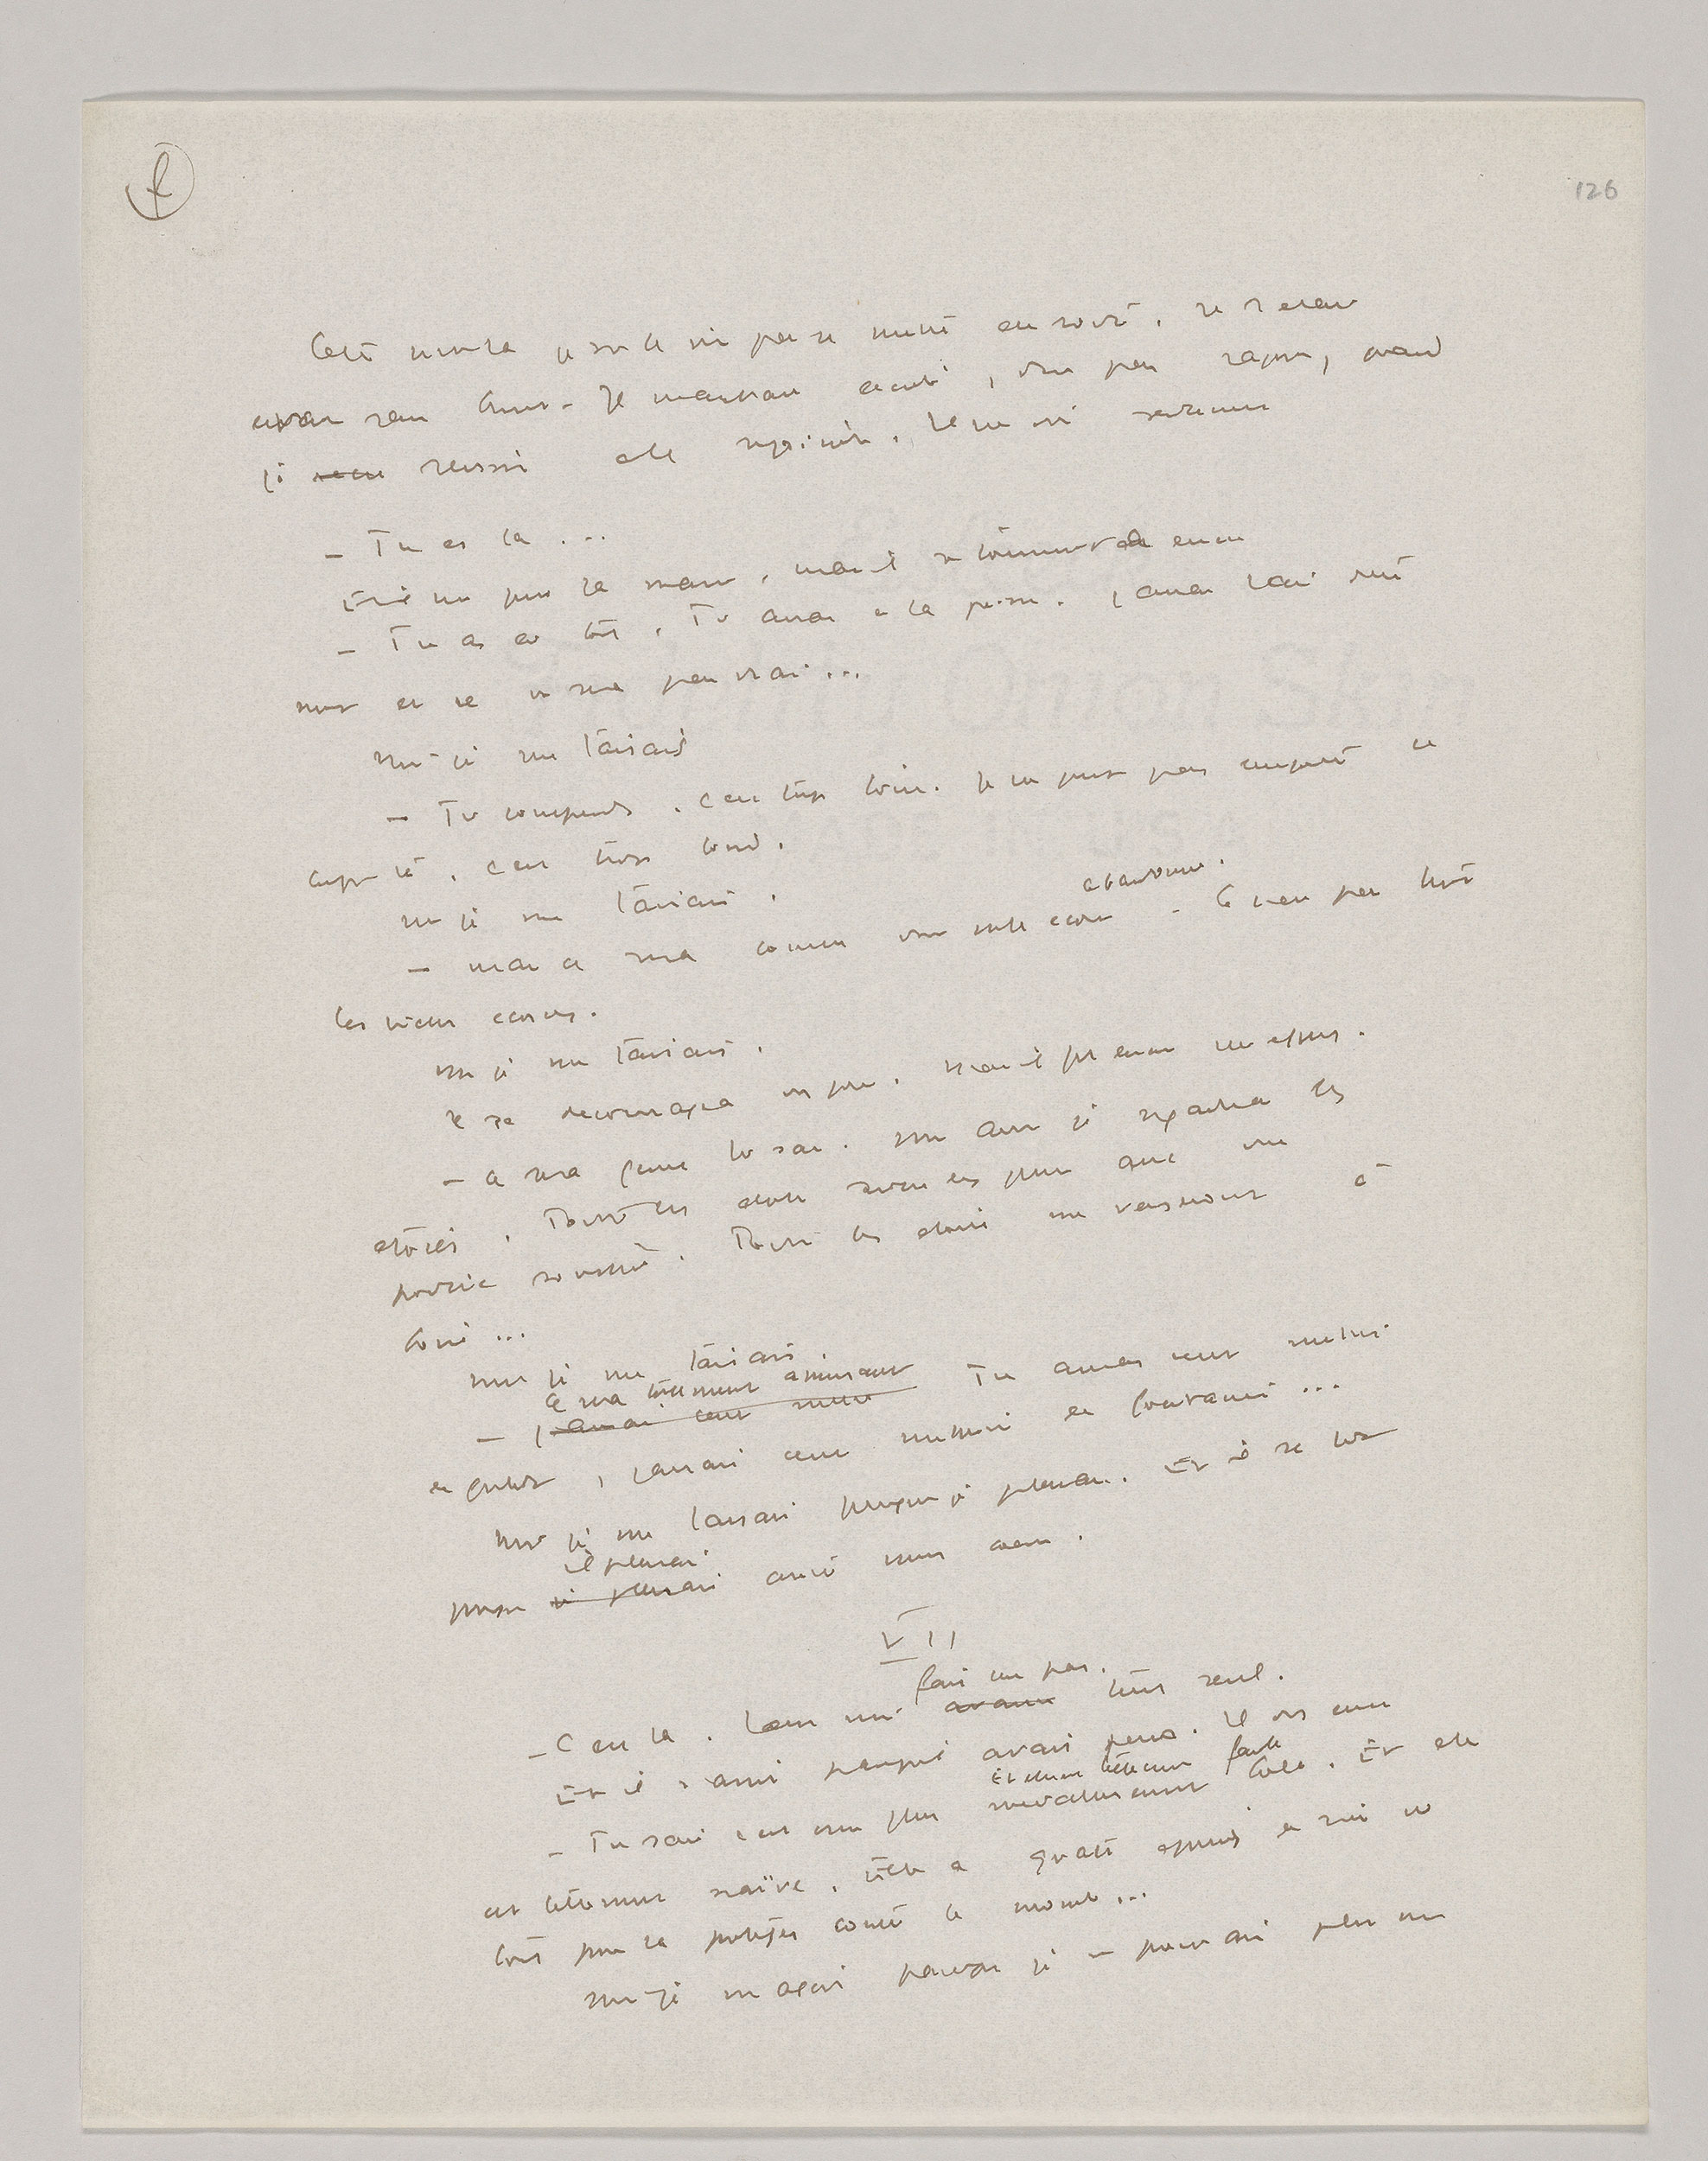 126
Cette nuit la je ne le vis pas se mettre en route. Il s'etait
evade sans bruit. Il marchait decidé, d'un pas rapide, quand
j'ai reussi a le rejoindre. Il me dit seulement
- Tu es la ...
Et il me prit la main. mais il se tourmenta encore
- Tu as eu tort. Tu auras de la peine. j'aurai l'air d'etre
mort et ce ne sera pas vrai ...
Moi je me taisais
- Tu comprends. c'est trop loin. Je ne peux pas emporter ce
corps là. c'est trop lourd.
moi je me taisais.
abandonnée.
- mais ce sera comme une vieille ecorce - Ce n'est pas triste
les vieilles ecorces.
moi je me taisais.
Il se decouragea un peu. Mais il fit encore un effort.
- ce sera gentil tu sais. Moi aussi je regarderai les
etoiles. Toutes les etoiles seront des puits avec une
poulie rouillée. Toutes les etoiles me verseront à
boire ...
moi je me taisais.
Ce sera tellement amusant
- j'aurai cent mille Tu auras cent millions
de grelots, j'aurai cent millions de fontaines ...
Moi je me taisais parce que je pleurais. Et il se tut
il pleurait
parce je pleurais aussi
VII
fait un pas.
- C'est la. Laisse moi tout seul.
Et il s'assit parce qu'il avait peur. Il dit encore
Et elle est tellement faible
- Tu sais c'est une fleur Et elle
est tellement naïve. Elle a quatre epines de rien du
tout pour la proteger contre le monde ...
Moi je m'assis parce que je ne pouvais plus me